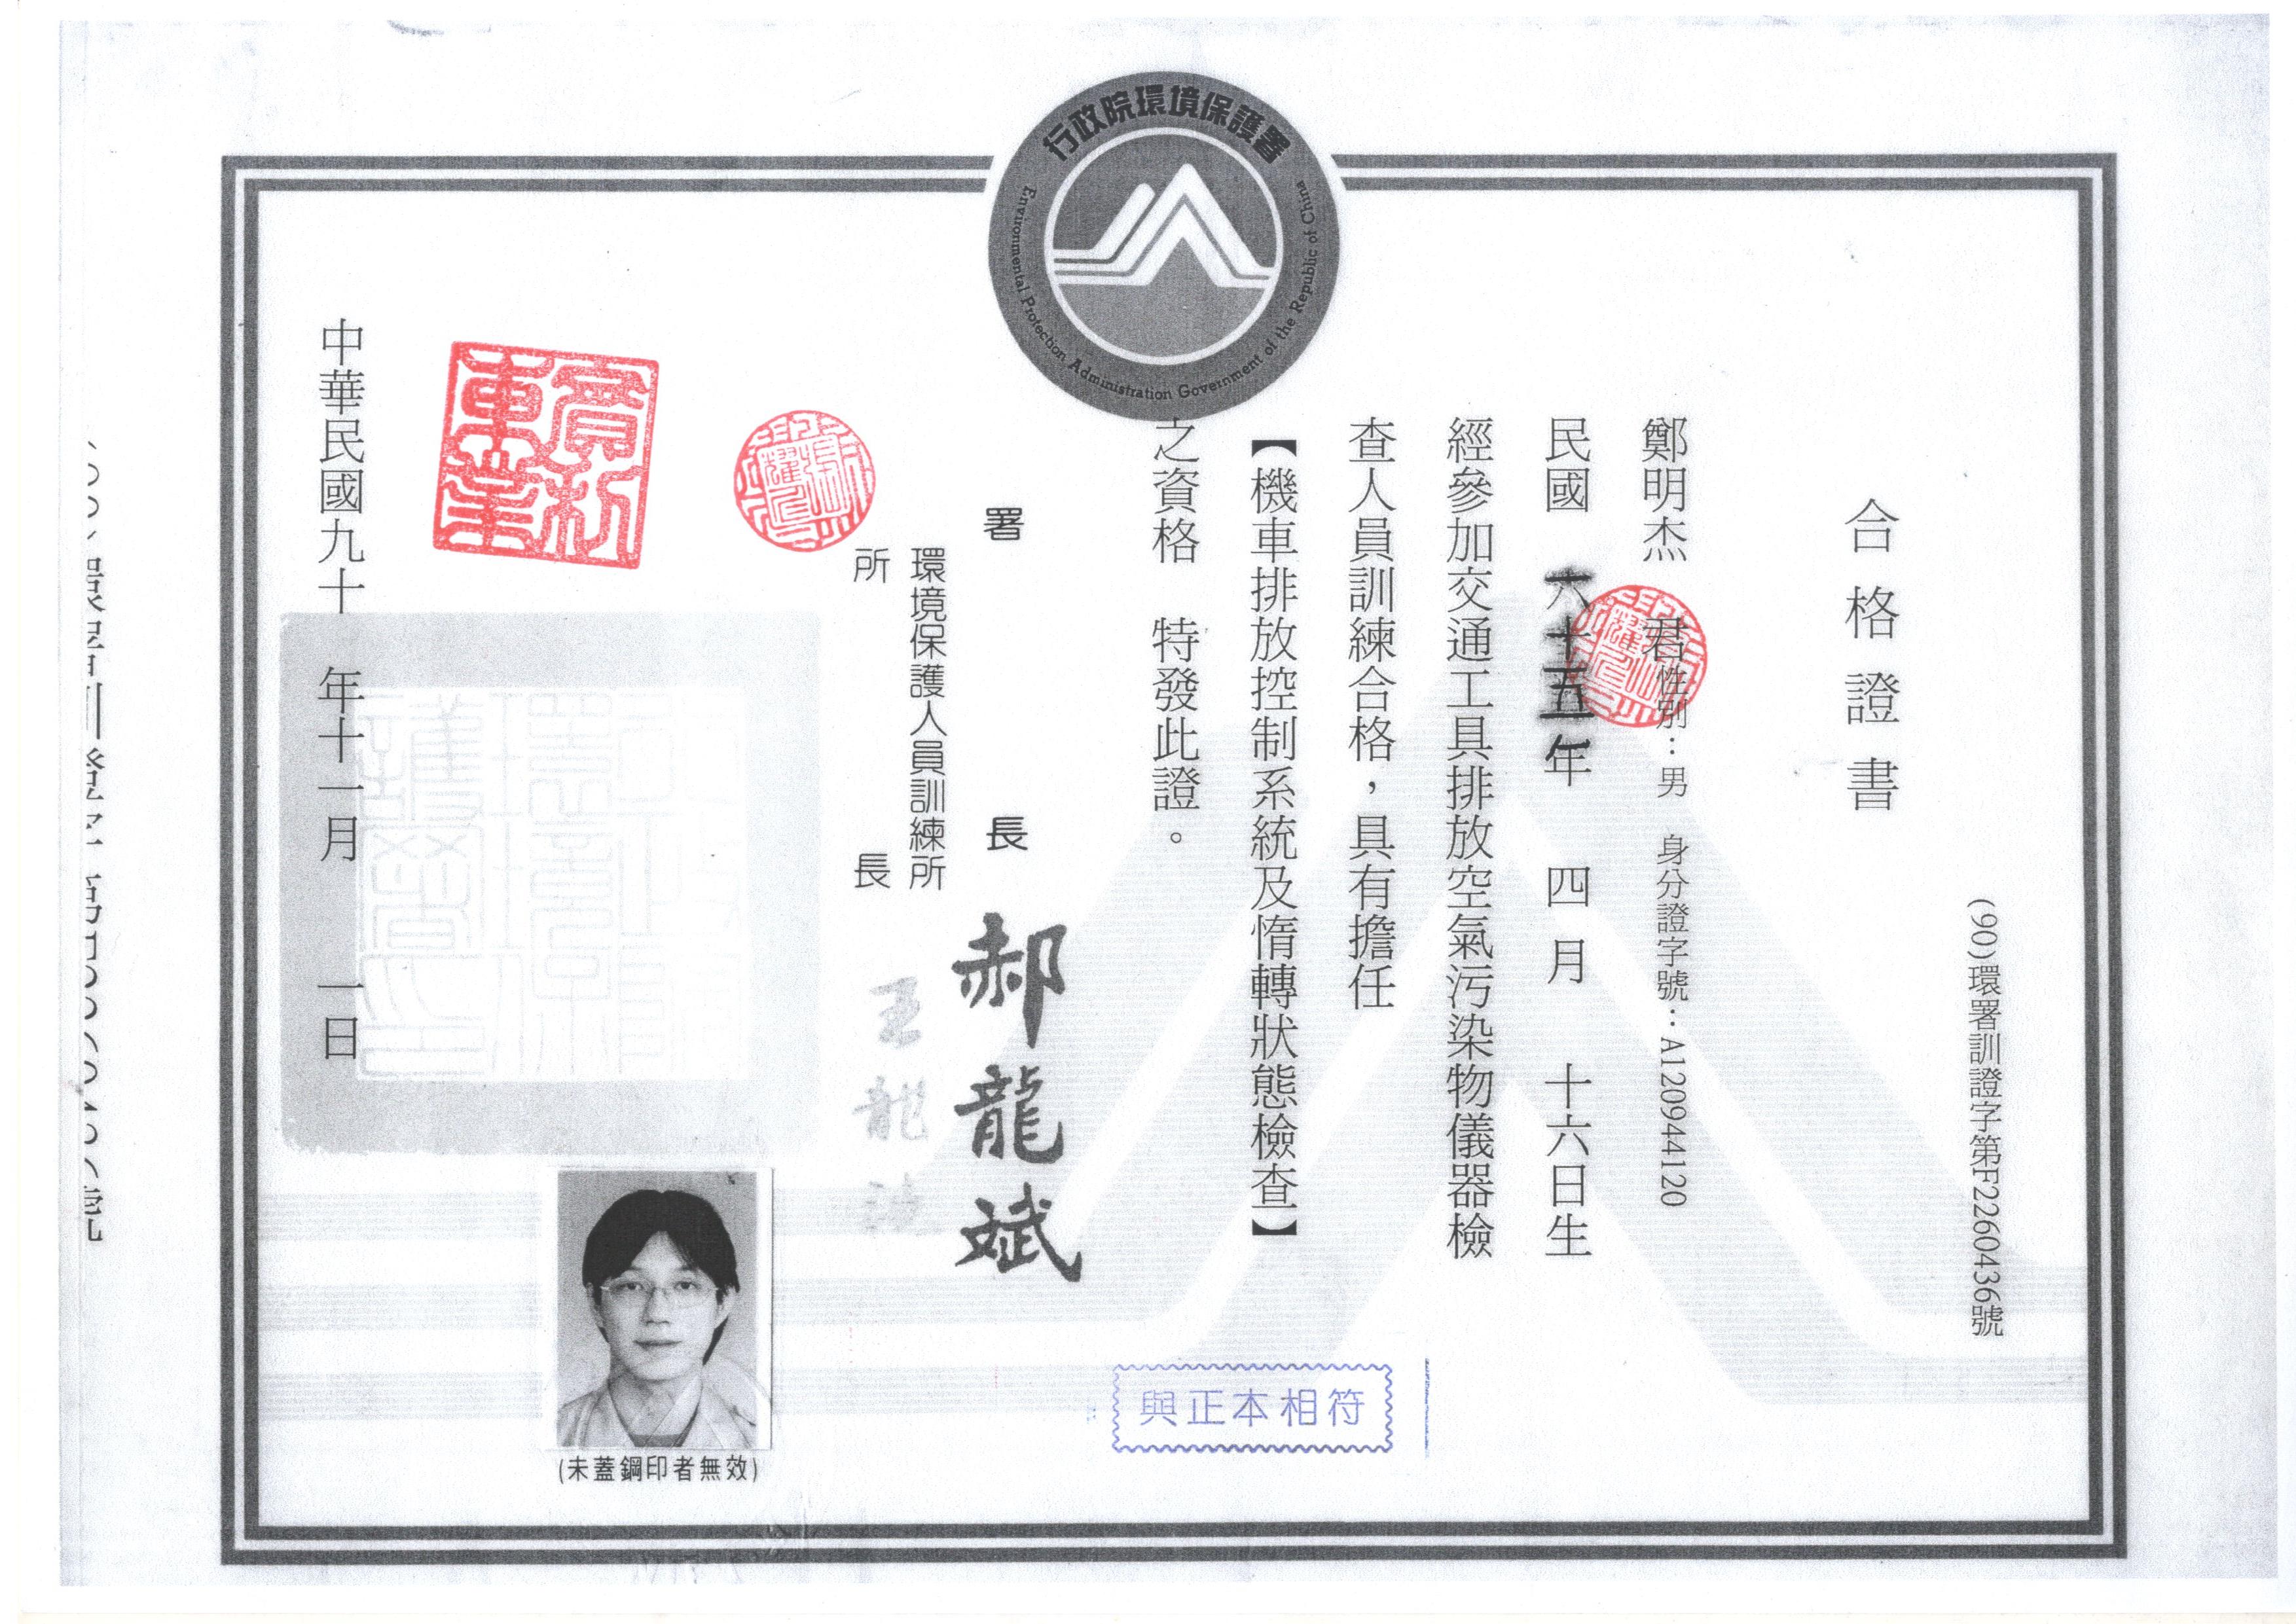 行政院環境保護署
Environmental Protection Administration Government of the Republic of China
(90)環署訓證字第F2260436號
合格證書
鄭明杰 君性別：男 身分證字號：A120944120
民國 六十五年 四月 十六日生
經參加交通工具排放空氣污染物儀器檢
查人員訓練合格，具有擔任
【機車排放控制系統及惰轉狀態檢查】
之資格 特發此證。
署長 郝龍斌
環境保護人員訓練所
所長
中華民國九十 年十一月 一日
(未蓋鋼印者無效)
與正本相符